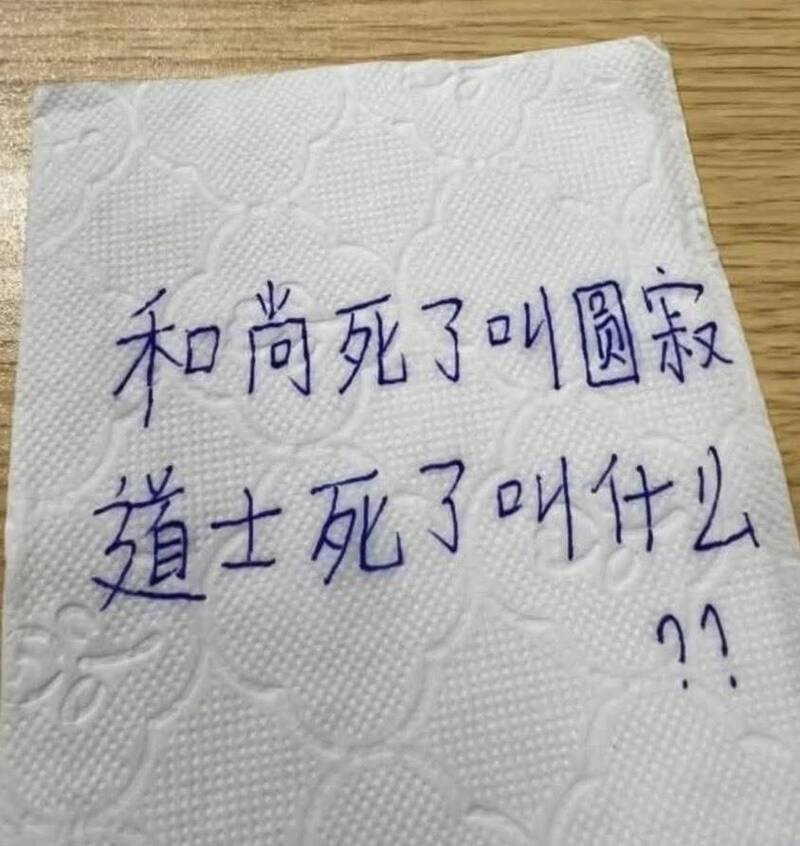 和尚死了叫圆寂
道士死了叫什么
??